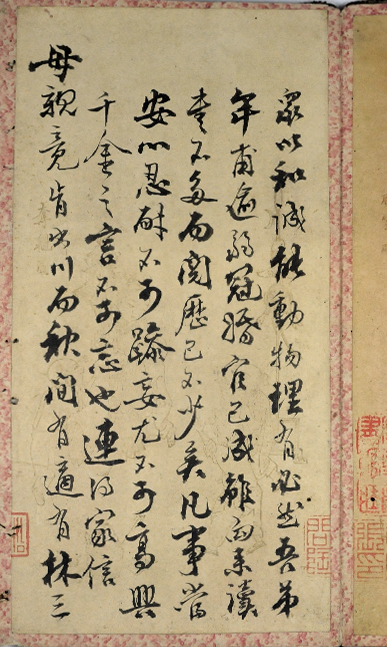 眾以和誠能動物理有必然吾弟
年甫逾弱冠婚宦已成雖向來讀
書不多而閱歷已不少矣凡事當
安心忍耐不可躁妄尤不可高興
千金之言不可忘也連得家信
母親竟肯出川而秋間有適有林三